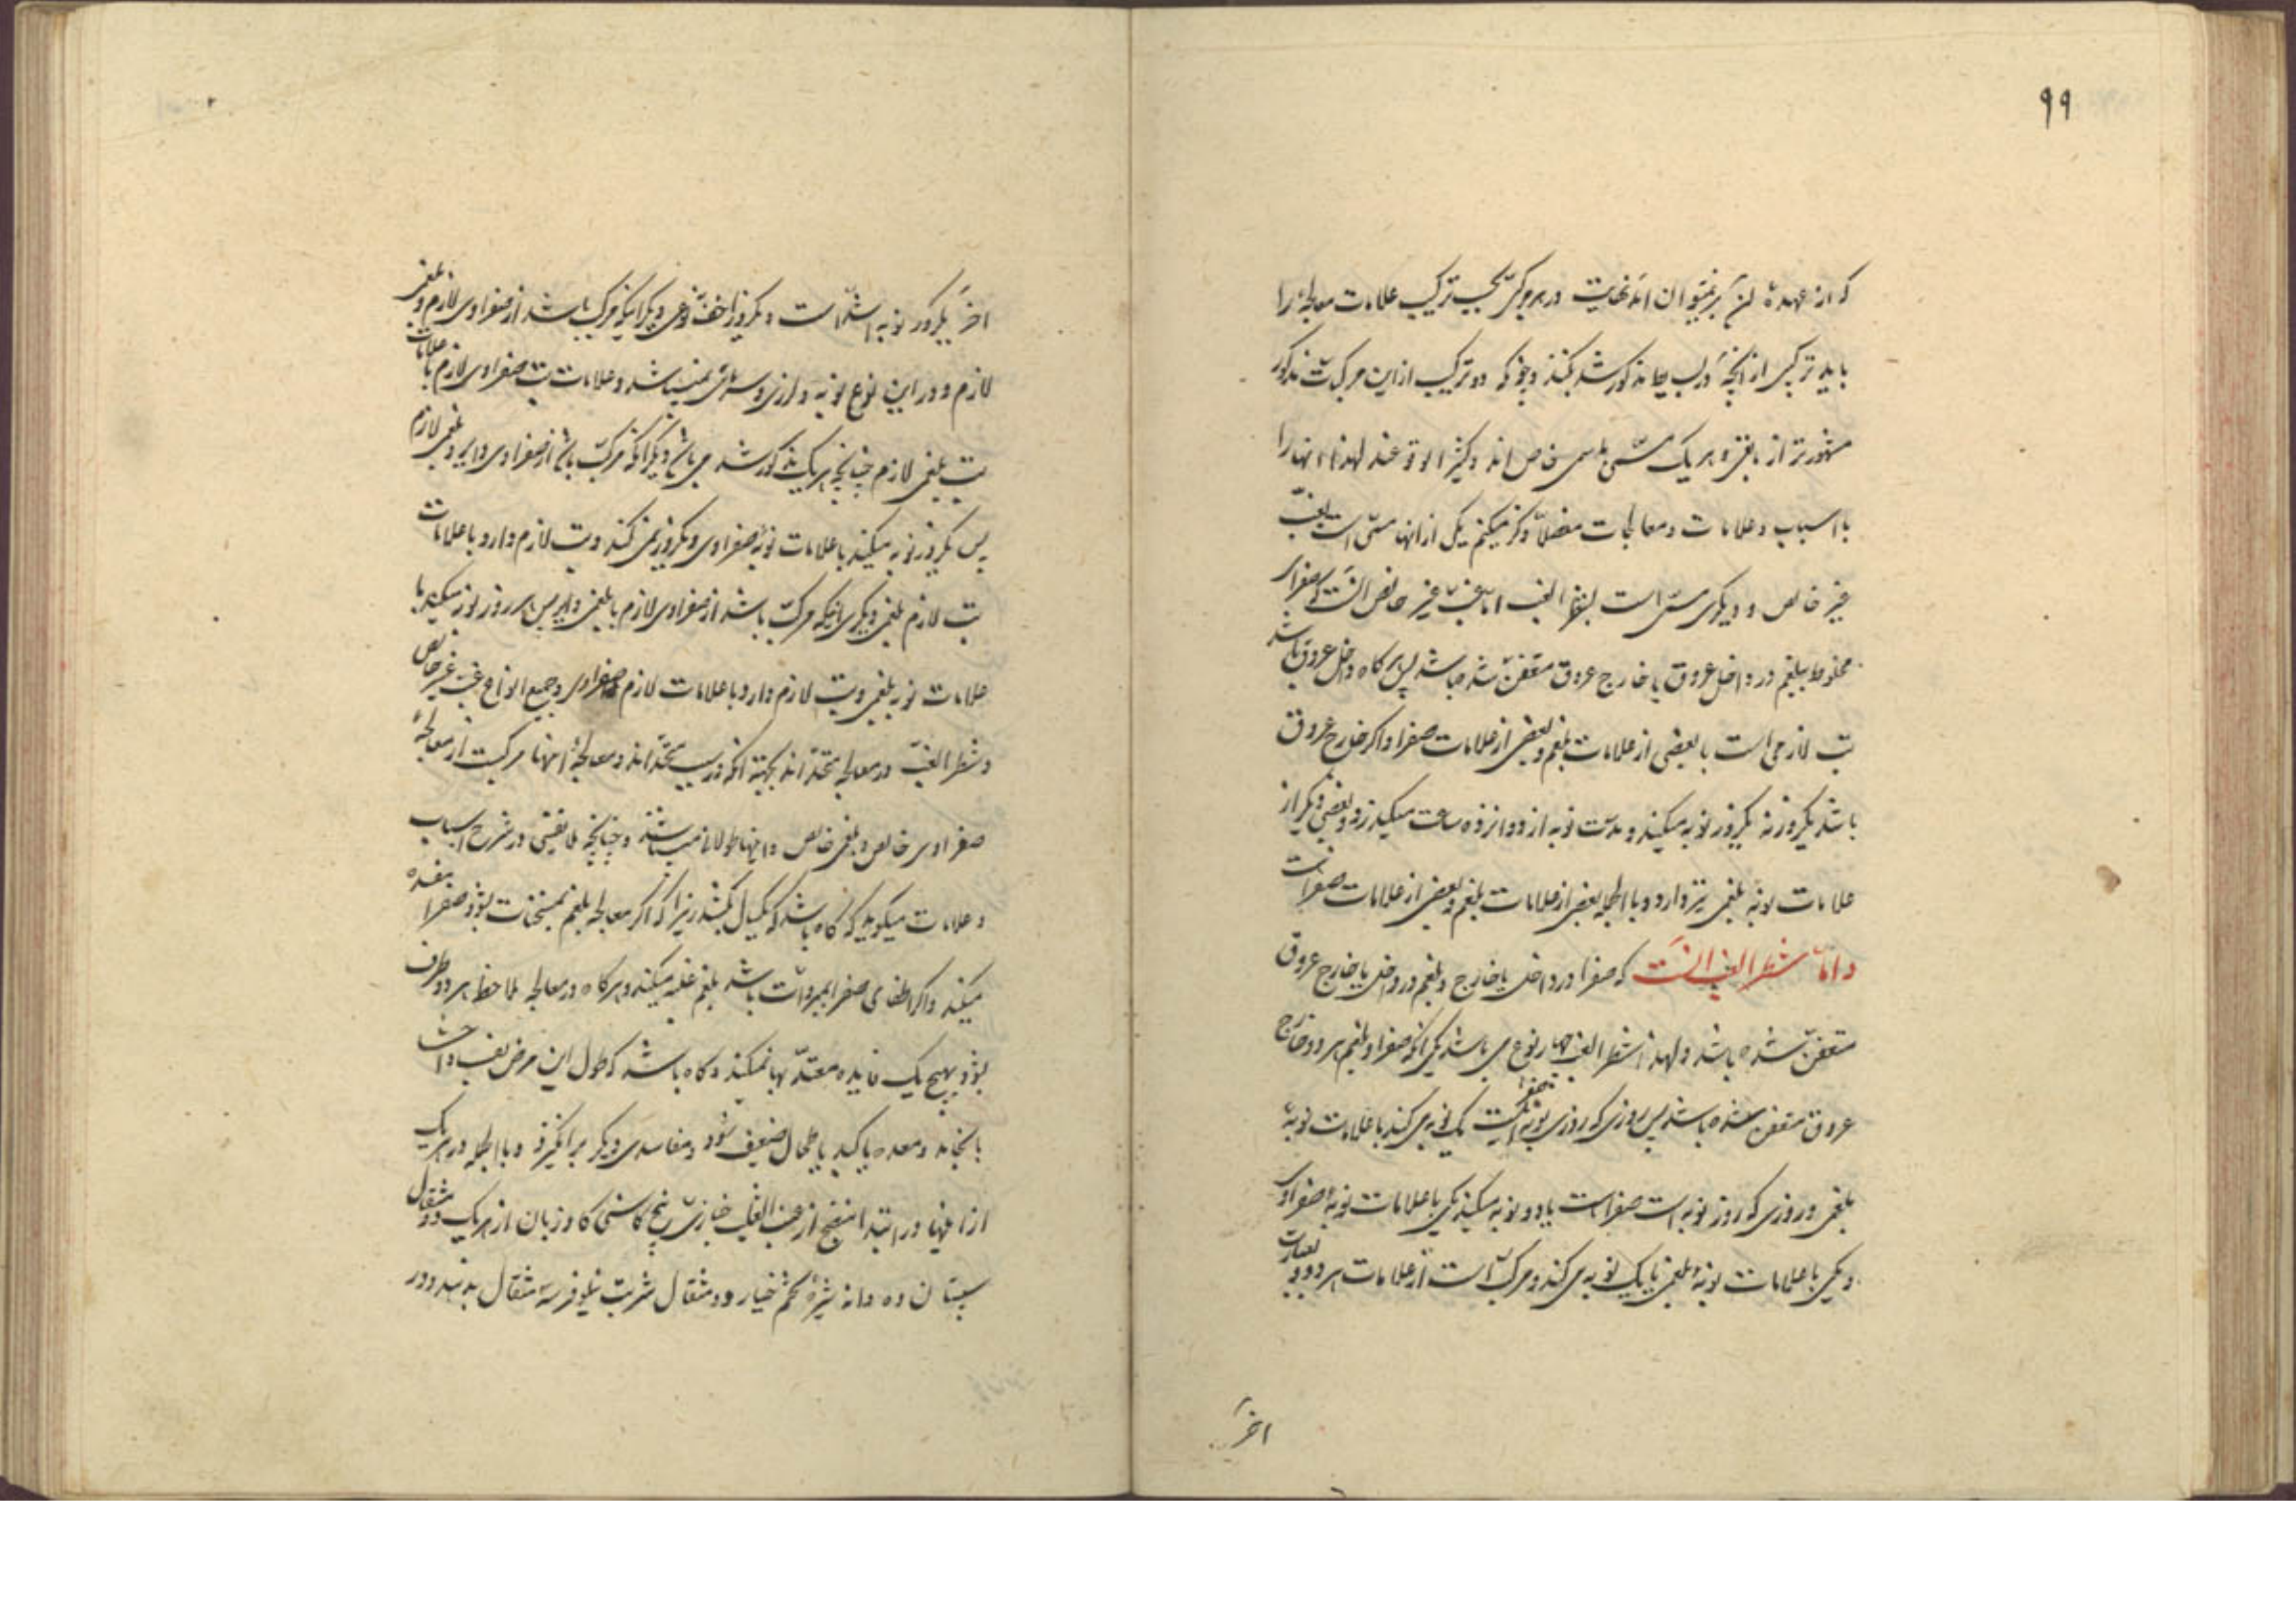 ۹۹
که از عهدهٔ آن بر نمیتوان آمد نهایت در هر مرکبی بحسب ترکیب علامات معالجه را
باید ترکیبی از آنچه در بسایط مذکور شد بکنند و چونکه دو ترکیب از این مرکبات مذکور
مشهورتر از باقی و هر یک مسمّی باسمی خاص اند و کثیر الوقوعند لهذا آنها را
با اسباب و علامات و معالجات مفصلاً ذکر میکنم یکی از آنها مسمّی است بغبّ
غیر خالص و دیگری مسمّی است بشطر الغب اما غبّ غیر خالص آنست که صفرای
مخلوط ببلغم در داخل عروق یا خارج عروق متعفن شده باشد پس هرگاه داخل عروق باشد
تب لازمی است با بعضی از علامات بلغم و بعضی از علامات صفرا و اگر خارج عروق
باشد یکروز نه یکروز نوبه میکند و مدت نوبه از دوازده ساعت میگذرد و بعضی دیگر از
علامات نوبهٔ بلغمی نیز دارد و بالجمله بعضی از علامات بلغم و بعضی از علامات صفراست
و اما شطر الغب آنست که صفرا در داخل یا خارج و بلغم در داخل یا خارج عروق
متعفن شده باشد و لهذا شطر الغب چهار نوع می باشد یکی آنکه صفرا و بلغم هر دو خارج
عروق متعفن شده باشد پس روزی که روزی نوبهٔ صفرا نیست یک نوبه می کند با علامات نوبهٔ
بلغمی و روزی که روز نوبه است صفراست یا دو نوبه میکند یکی با علامات نوبهٔ صفراوی
و یکی با علامات نوبهٔ بلغمی یا یک نوبه می کند و مرکب است از علامات هر دو و بعبارت
اخرَ
اخرَ یکروز نوبه اشدّ است و یکروز اخف نوعی دیگر آنکه مرکب باشد از صفراوی لازم و بلغمی
لازم و در این نوع نوبه و لرزی و سرمای نمیباشد و علامات تب صفراوی لازم با علامات
تب بلغمی لازم چنانچه هر یک مذکور شد می باشد دیگر آنکه مرکب باشد از صفراوی دایر و بلغمی لازم
پس یکروز نوبه میکند با علامات نوبهٔ صفراوی و یکروز نمی کند و تب لازم دارد با علامات
تب لازم بلغمی دیگری آنکه مرکب باشد از صفراوی لازم با بلغمی دایر پس هر روز نوبه میکند با
علامات نوبه بلغمی و تب لازم دارد با علامات لازم صفراوی و جمیع انواع غب غیر خالص
و شطر الغبّ در معالجه متحد اند بجهة آنکه در سبب متحد اند و معالجهٔ آنها مرکبست از معالجهٔ
صفراوی خالص و بلغمی خالص و اینها طولانی میباشند و چنانچه نفیسی در شرح اسباب
و علامات میگوید که گاه باشد که یکسال بکشد زیرا که اگر معالجه بلغم بمسخنات بشود صفرا بیفزه
میکند و اگر اطفای صفرا بمبردات باشد بلغم غلبه میکند و هرگاه در معالجه ملاحظه هر دو طرف
بشود بهیچ یک فایده معتدّ بها نمیکند و گاه باشد که طول این مرض
بانجامد و معده یا کبد یا طحال ضعیف شود و مفاسدی دیگر برانگیزد و بالجمله در هر یک
از اینها در ابتدا منضج از عنب الثعلب خبازی بیخ کاسنی گاوزبان از هر یک دو مثقال
سپستان ده دانه شیرهٔ تخم خیار دو مثقال شربت نیلوفر سه مثقال بدهند و در